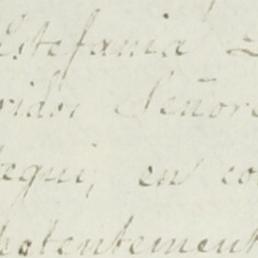 Estefania
ridos Señore
legui, en co
patentement